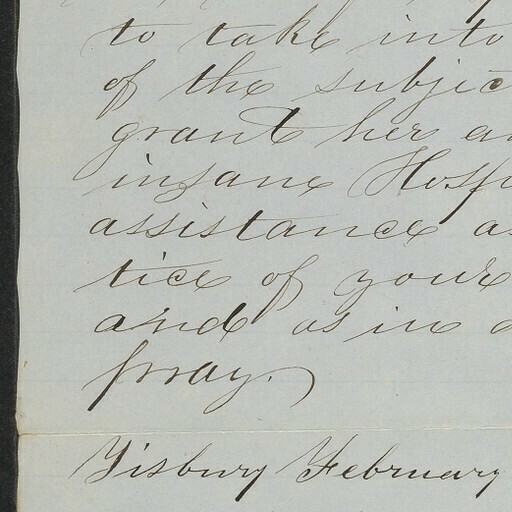 to take into
of the subjec
grant her an
insane Hosp
assistance as
tice of your
and as in d
pray.
Tisbury February